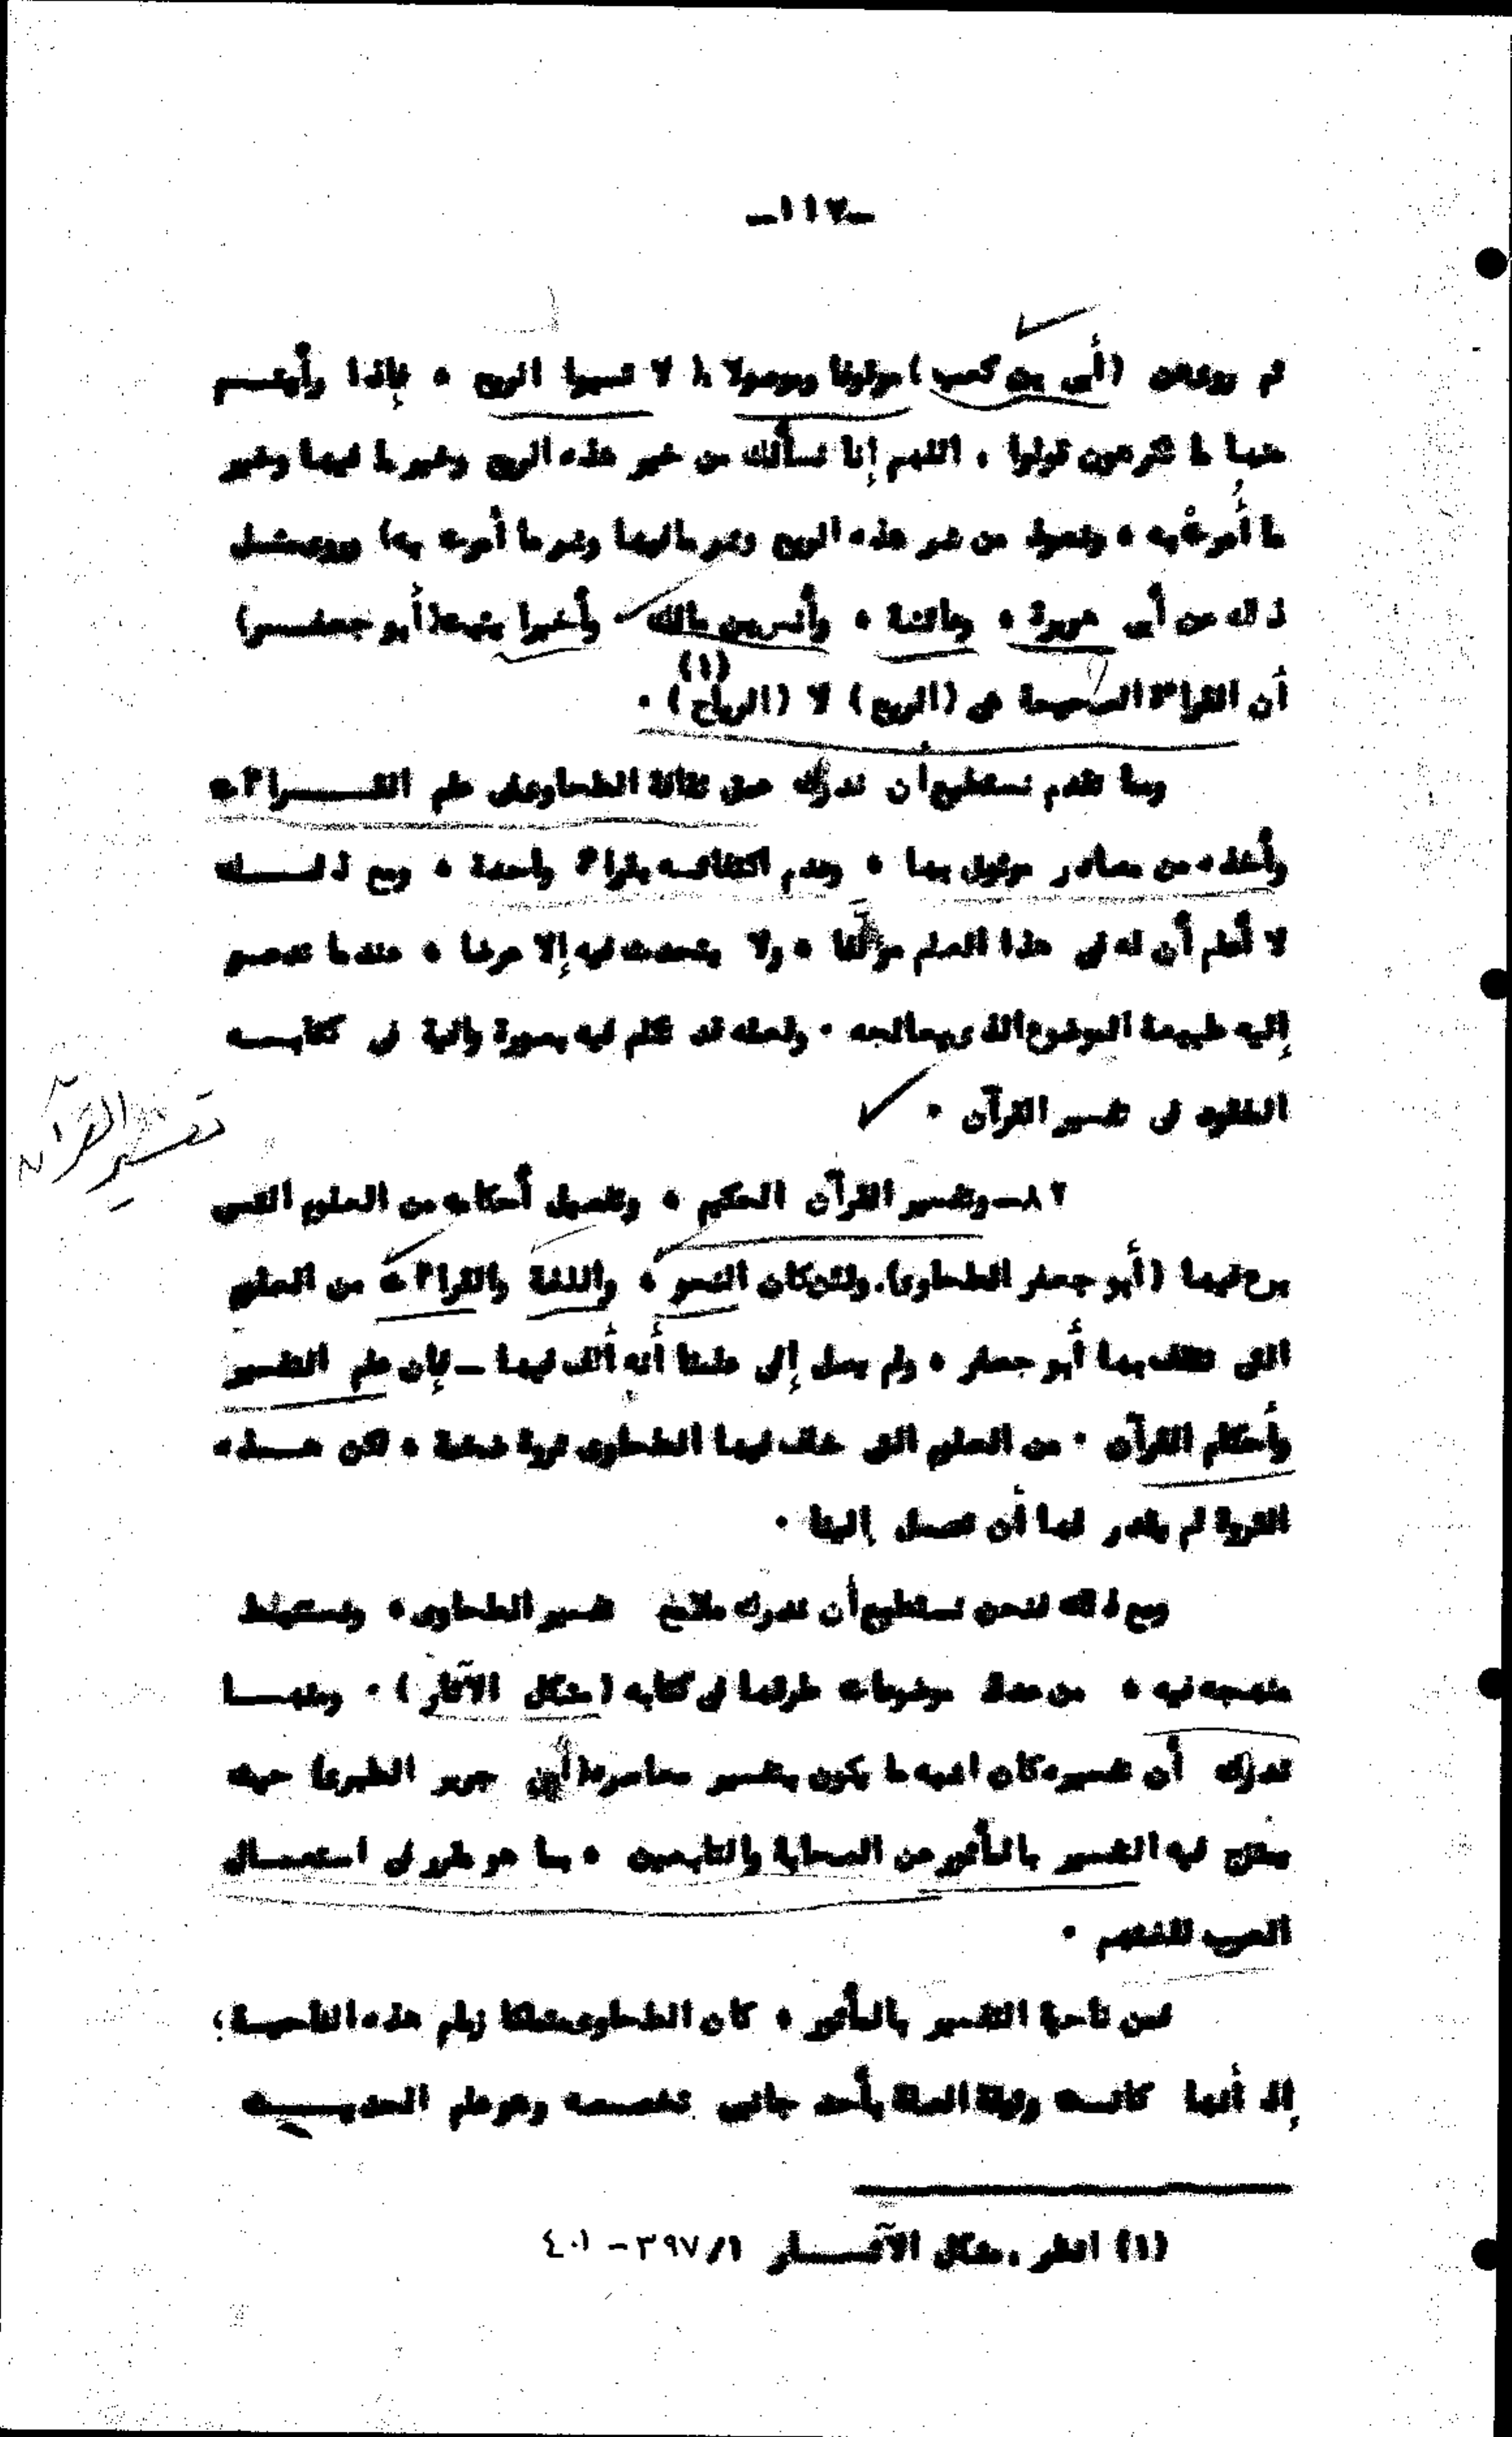 -١١٧-
ثم روى عن (أبي بن كعب) موقوفا وموصولا (لا تسبوا الريح ، فإذا رأيتم
منها ما تكرهون قولوا ، اللهم إنا نسألك من خير هذه الريح وخير ما فيها وخير
ما أُمرتْ به ، ونعوذ من شر هذه الريح وشر ما فيها وشر ما أمرت به) وروى مثل
ذلك عن أبي هريرة ، وعائشة ، وأنس بن مالك وأخيرا يثبت (أبو جعفر)
أن القراءة الصحيحة هي (الريح) لا (الرياح) (١) .
ومما تقدم نستطيع أن ندرك عمق ثقافة الطحاوى في علم القراءات
وأخذه من مصادر موثوق بها ، وعدم اكتفائه بقراءة واحدة ، ومع ذلك
لا أعلم أن له في هذا العلم مؤلفا ، ولا يتحدث فيه إلا عرضا ، عندما تدعو
إليه طبيعة الموضوع الذى يعالجه . ولعله قد تكلم فيه بصورة وافية في كتابه
المفقود في تفسير القرآن .
تفسير القرآن
٨٢- وتفسير القرآن الحكيم ، وتفصيل أحكامه من العلوم التي
برع فيها (أبو جعفر الطحاوى). ولئن كان النحو ، واللغة والقراءات من العلوم
التي تثقف بها أبو جعفر ، ولم يصل إلى علمنا أنه ألف فيها - فإن علم التفسير
وأحكام القرآن . من العلوم التي خلف فيها الطحاوى ثروة ضخمة ، لكن هذه
الثروة لم يقدر لها أن تصل إلينا .
ومع ذلك فنحن نستطيع أن ندرك ملامح تفسير الطحاوى ، ونستنبط
منهجه فيه ، من عدة موضوعات طرقها في كتابه (مشكل الآثار) . ومنها
ندرك أن تفسيره كان أشبه ما يكون بتفسير معاصره (ابن جرير الطبرى) حيث
يمتزج فيه التفسير بالمأثور عن الصحابة والتابعين ، بما هو مقرر في استعمال
العرب للغتهم .
فمن ناحية التفسير بالمأثور ، كان الطحاوى ممتلكا زمام هذه الناحية ؛
إذ أنها كانت وثيقة الصلة بأحد جانبي تخصصه وهو علم الحديث
(١) انظر ، مشكل الآثار ١/٣٩٧ - ٤٠١